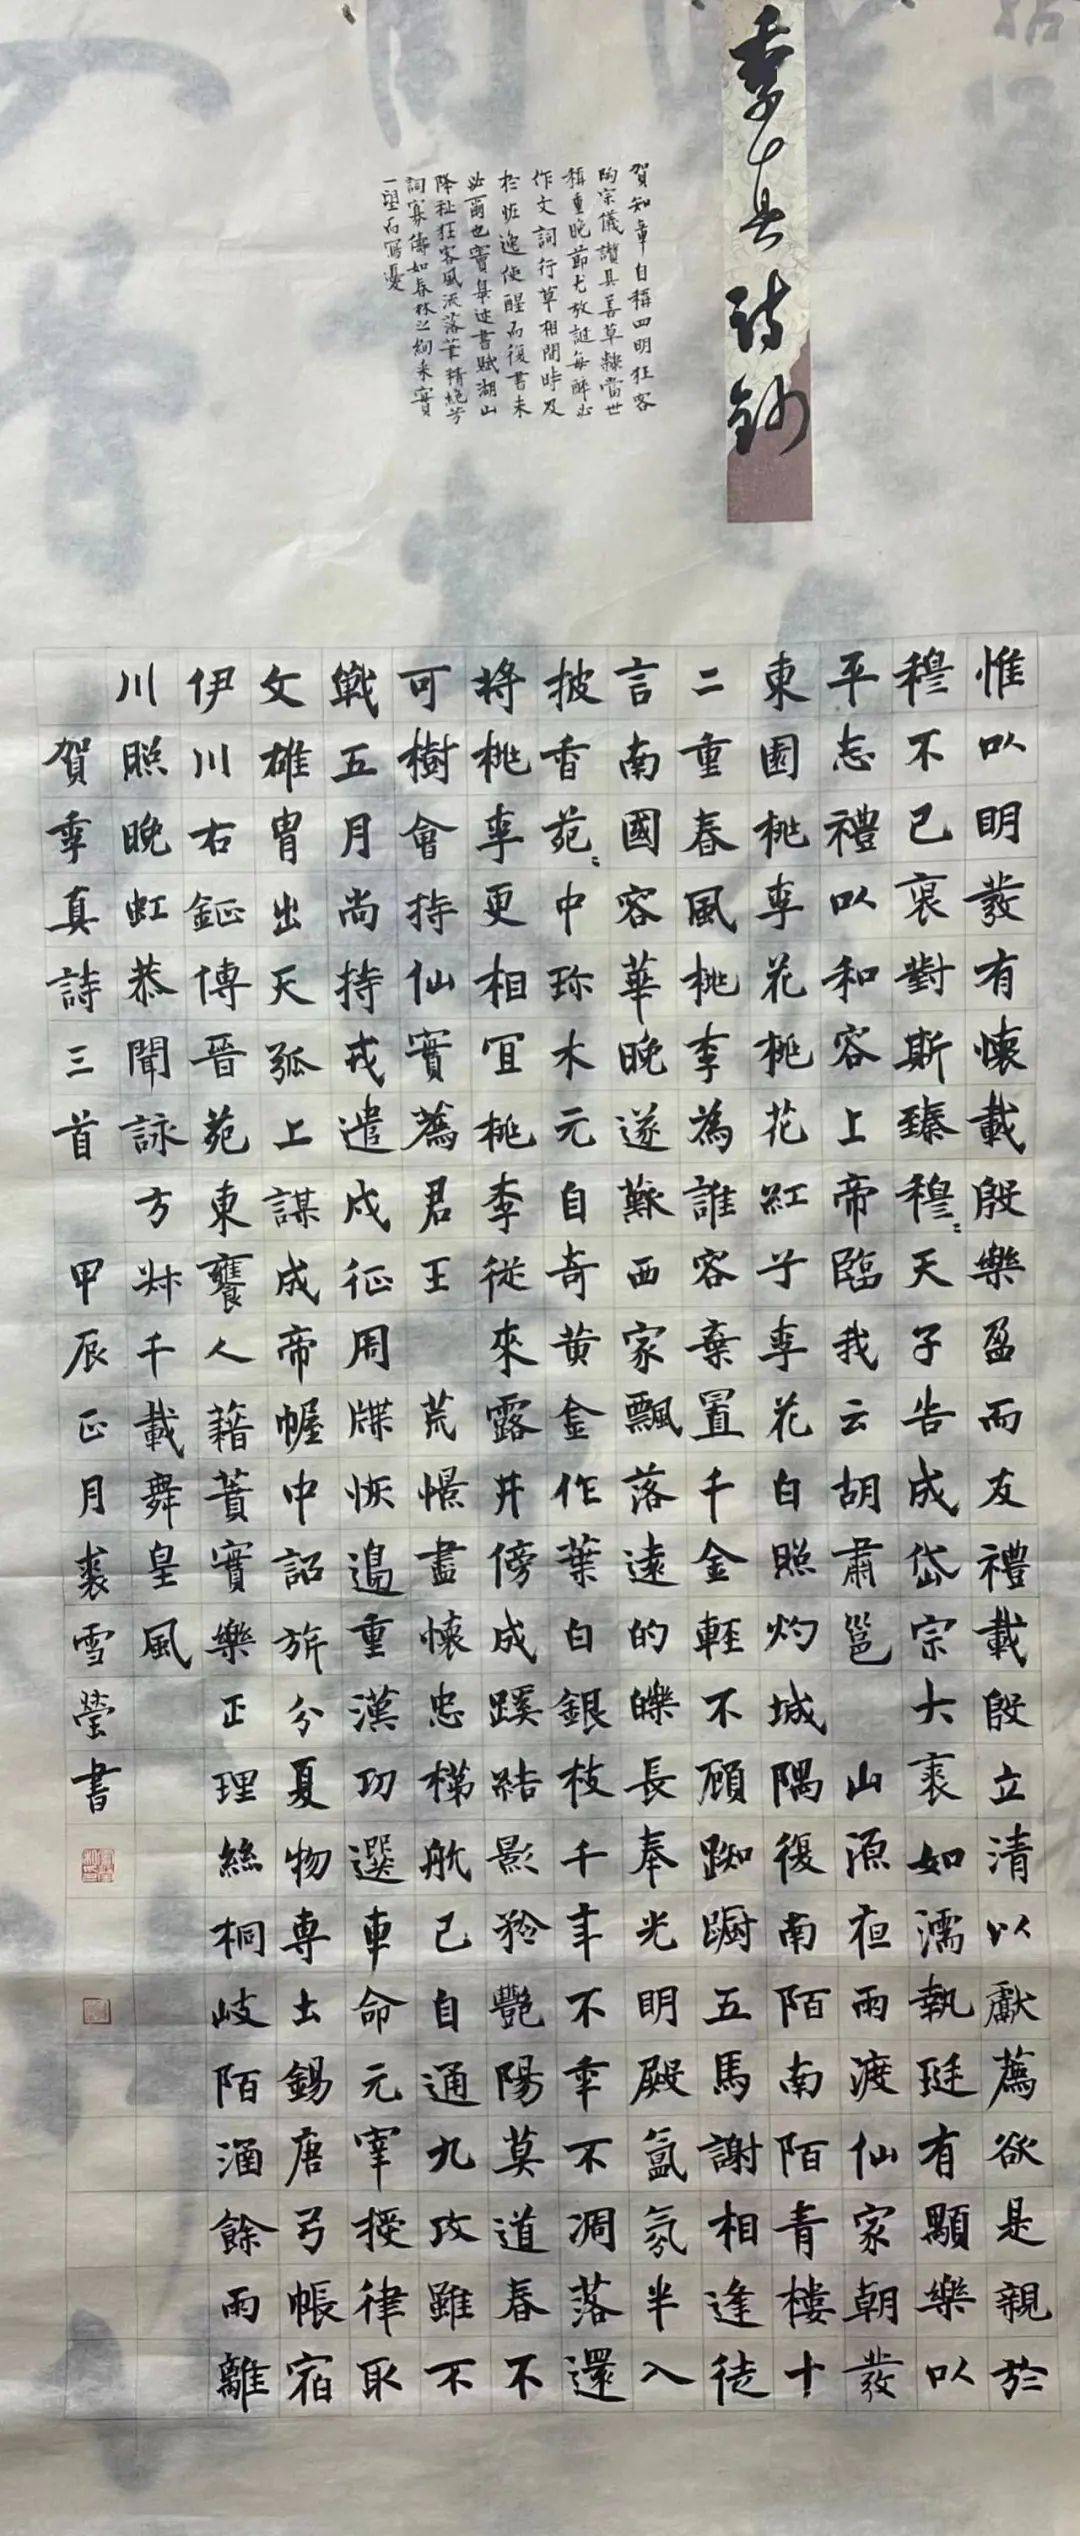 季真詩鈔
賀知章自稱四明狂客
陶宗儀讚其善草隸當世
稱重晚節尤放誕每醉必
作文詞行草相間時及
於怪逸使醒而復書未
必爾也竇臮述書賦湖山
降祉狂客風流落筆精絕芳
詞寡儔如春林之絢采實
一望而寫憂
惟以明發有懷載殷樂盈而友禮載殷立清以獻薦欲是親於
穆不已裒對斯臻穆〻天子告成岱宗大裘如濡執珽有顒樂以
平志禮以和容上帝臨我云胡肅邕 山源夜雨渡仙家朝發
東園桃李花桃花紅兮李花白照灼城隅復南陌南陌青樓十
二重春風桃李為誰容棄置千金輕不顧踟躕五馬謝相逢徒
言南國容華晚遂歎西家飄落遠的皪長奉光明殿氳氛半入
披香苑〻中珍木元自奇黃金作葉白銀枝千年不季不凋落還
將桃李更相宜桃李從來露井傍成蹊結影矜艷陽莫道春不
可樹會持仙實薦君王 荒憬盡懷忠梯航已自通九攻雖不
戰五月尚持戎遣戍征周牒恢邊重漢功選車命元宰授律取
文雄冑出天弧上謀成帝幄中詔旂分夏物專土錫唐弓帳宿
伊川右鉦傳晉苑東饔人藉蕡實樂正理絲桐岐陌涵餘雨離
川照晚虹恭聞詠方叔千載舞皇風
賀季真詩三首 甲辰正月裘雪瑩書